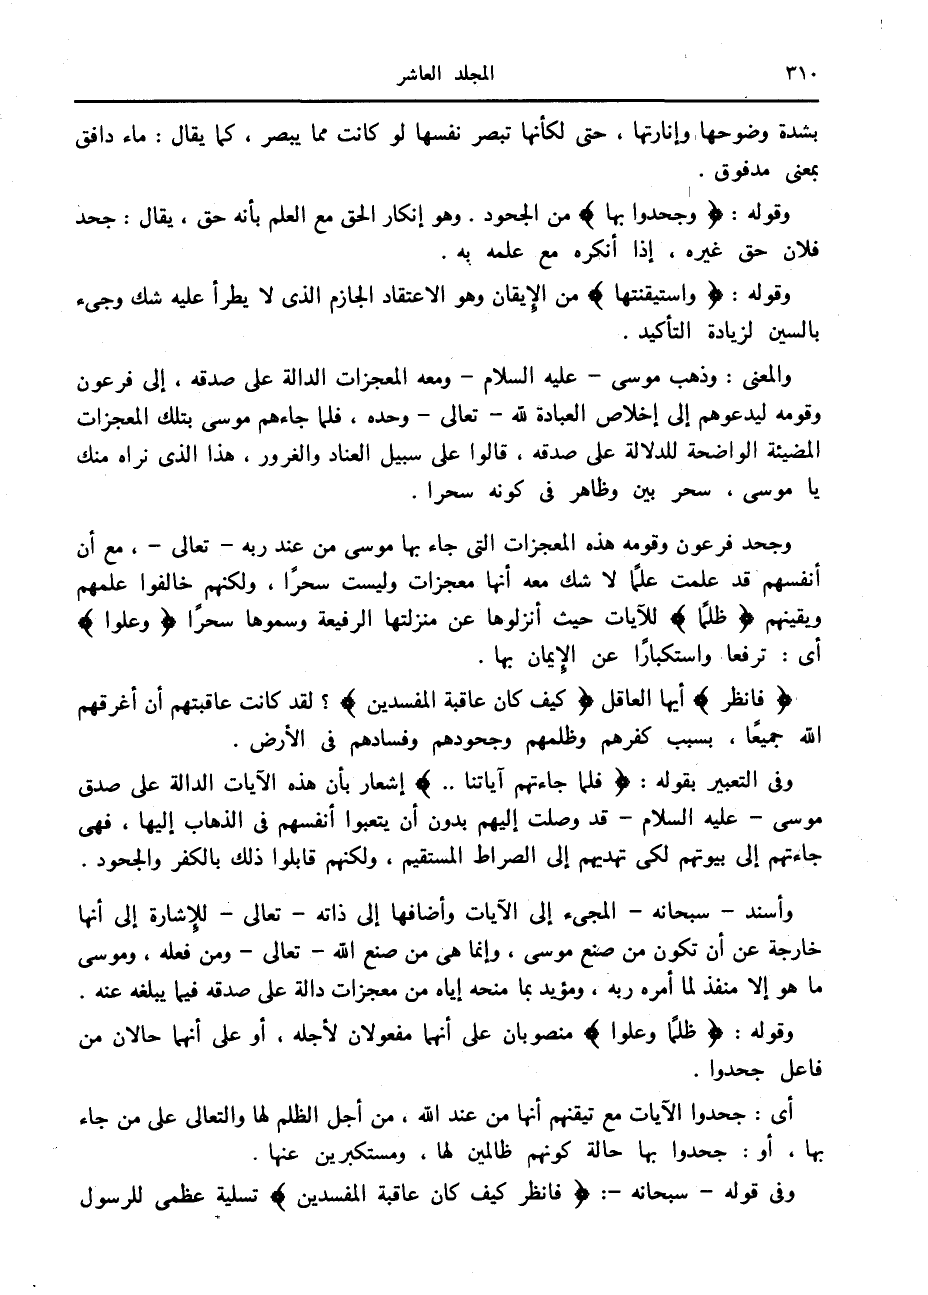 ٣١٠
المجلد العاشر
بشدة وضوحها وإنارتها ، حتى لكأنها تبصر نفسها لو كانت مما يبصر ، كما يقال : ماء دافق
بمعنى مدفوق .
وقوله : ﴿ وجحدوا بها ﴾ من الجحود . وهو إنكار الحق مع العلم بأنه حق ، يقال : جحد
فلان حق غيره ، إذا أنكره مع علمه به .
وقوله : ﴿ واستيقنتها ﴾ من الإيقان وهو الاعتقاد الجازم الذى لا يطرأ عليه شك وجىء
بالسين لزيادة التأكيد .
والمعنى : وذهب موسى – عليه السلام – ومعه المعجزات الدالة على صدقه ، إلى فرعون
وقومه ليدعوهم إلى إخلاص العبادة لله – تعالى – وحده ، فلما جاءهم موسى بتلك المعجزات
المضيئة الواضحة للدلالة على صدقه ، قالوا على سبيل العناد والغرور ، هذا الذى نراه منك
يا موسى ، سحر بين وظاهر فى كونه سحرا .
وجحد فرعون وقومه هذه المعجزات التى جاء بها موسى من عند ربه – تعالى – ، مع أن
أنفسهم قد علمت علمًا لا شك معه أنها معجزات وليست سحرًا ، ولكنهم خالفوا علمهم
ويقينهم ﴿ ظلمًا ﴾ للآيات حيث أنزلوها عن منزلتها الرفيعة وسموها سحرًا ﴿ وعلوا ﴾
أى : ترفعا واستكبارًا عن الإيمان بها .
﴿ فانظر ﴾ أيها العاقل ﴿ كيف كان عاقبة المفسدين ﴾ ؟ لقد كانت عاقبتهم أن أغرقهم
الله جميعًا ، بسبب كفرهم وظلمهم وجحودهم وفسادهم فى الأرض .
وفى التعبير بقوله : ﴿ فلما جاءتهم آياتنا .. ﴾ إشعار بأن هذه الآيات الدالة على صدق
موسى – عليه السلام – قد وصلت إليهم بدون أن يتعبوا أنفسهم فى الذهاب إليها ، فهى
جاءتهم إلى بيوتهم لكى تهديهم إلى الصراط المستقيم ، ولكنهم قابلوا ذلك بالكفر والجحود .
وأسند – سبحانه – المجىء إلى الآيات وأضافها إلى ذاته – تعالى – للإشارة إلى أنها
خارجة عن أن تكون من صنع موسى ، وإنما هى من صنع الله – تعالى – ومن فعله ، وموسى
ما هو إلا منفذ لما أمره ربه ، ومؤيد بما منحه إياه من معجزات دالة على صدقه فيما يبلغه عنه .
وقوله : ﴿ ظلمًا وعلوا ﴾ منصوبان على أنهما مفعولان لأجله ، أو على أنهما حالان من
فاعل جحدوا .
أى : جحدوا الآيات مع تيقنهم أنها من عند الله ، من أجل الظلم لها والتعالى على من جاء
بها ، أو : جحدوا بها حالة كونهم ظالمين لها ، ومستكبرين عنها .
وفى قوله – سبحانه –: ﴿ فانظر كيف كان عاقبة المفسدين ﴾ تسلية عظمى للرسول